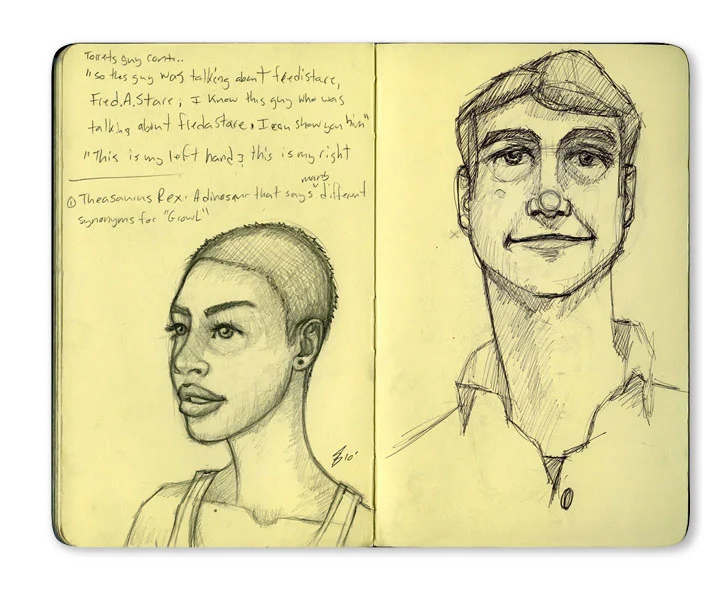 Torrets guy cont..
"so this guy was talking about fredistare,
Fred.A.Stare, I know this guy who was
talking about fredastare, I can show you him"
"This is my left hand, this is my right
① Theasaurus Rex. A dinosaur that says many different
synonyms for "Growl"
10'